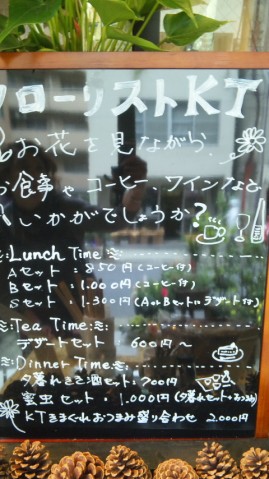 フローリストKT
お花を見ながら
お食事やコーヒー、ワインなど
いかがでしょうか?
Lunch Time
Aセット : 850円(コーヒー付)
Bセット : 1.000円(コーヒー付)
Sセット : 1.300円(AorBセット+デザート付)
Tea Time
デザートセット : 600円~
Dinner Time
夕暮れきき酒セット : 700円
蜜虫セット : 1.000円(夕暮れセット+おつまみ)
KTきまぐれおつまみ盛り合わせ 2.000円